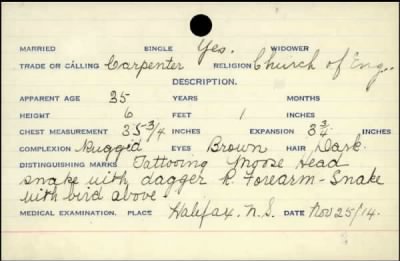 MARRIED SINGLE Yes. WIDOWER
TRADE OR CALLING Carpenter RELIGION Church of Eng.
DESCRIPTION.
APPARENT AGE 35 YEARS MONTHS
HEIGHT 6 FEET 1 INCHES
CHEST MEASUREMENT 35 3/4 INCHES EXPANSION 3 3/4 INCHES
COMPLEXION Rugged EYES Brown HAIR Dark.
DISTINGUISHING MARKS Tattooing Moose Head
snake with dagger R. Forearm - Snake
with bird above.
MEDICAL EXAMINATION. PLACE Halifax. N.S. DATE Nov 25/14.